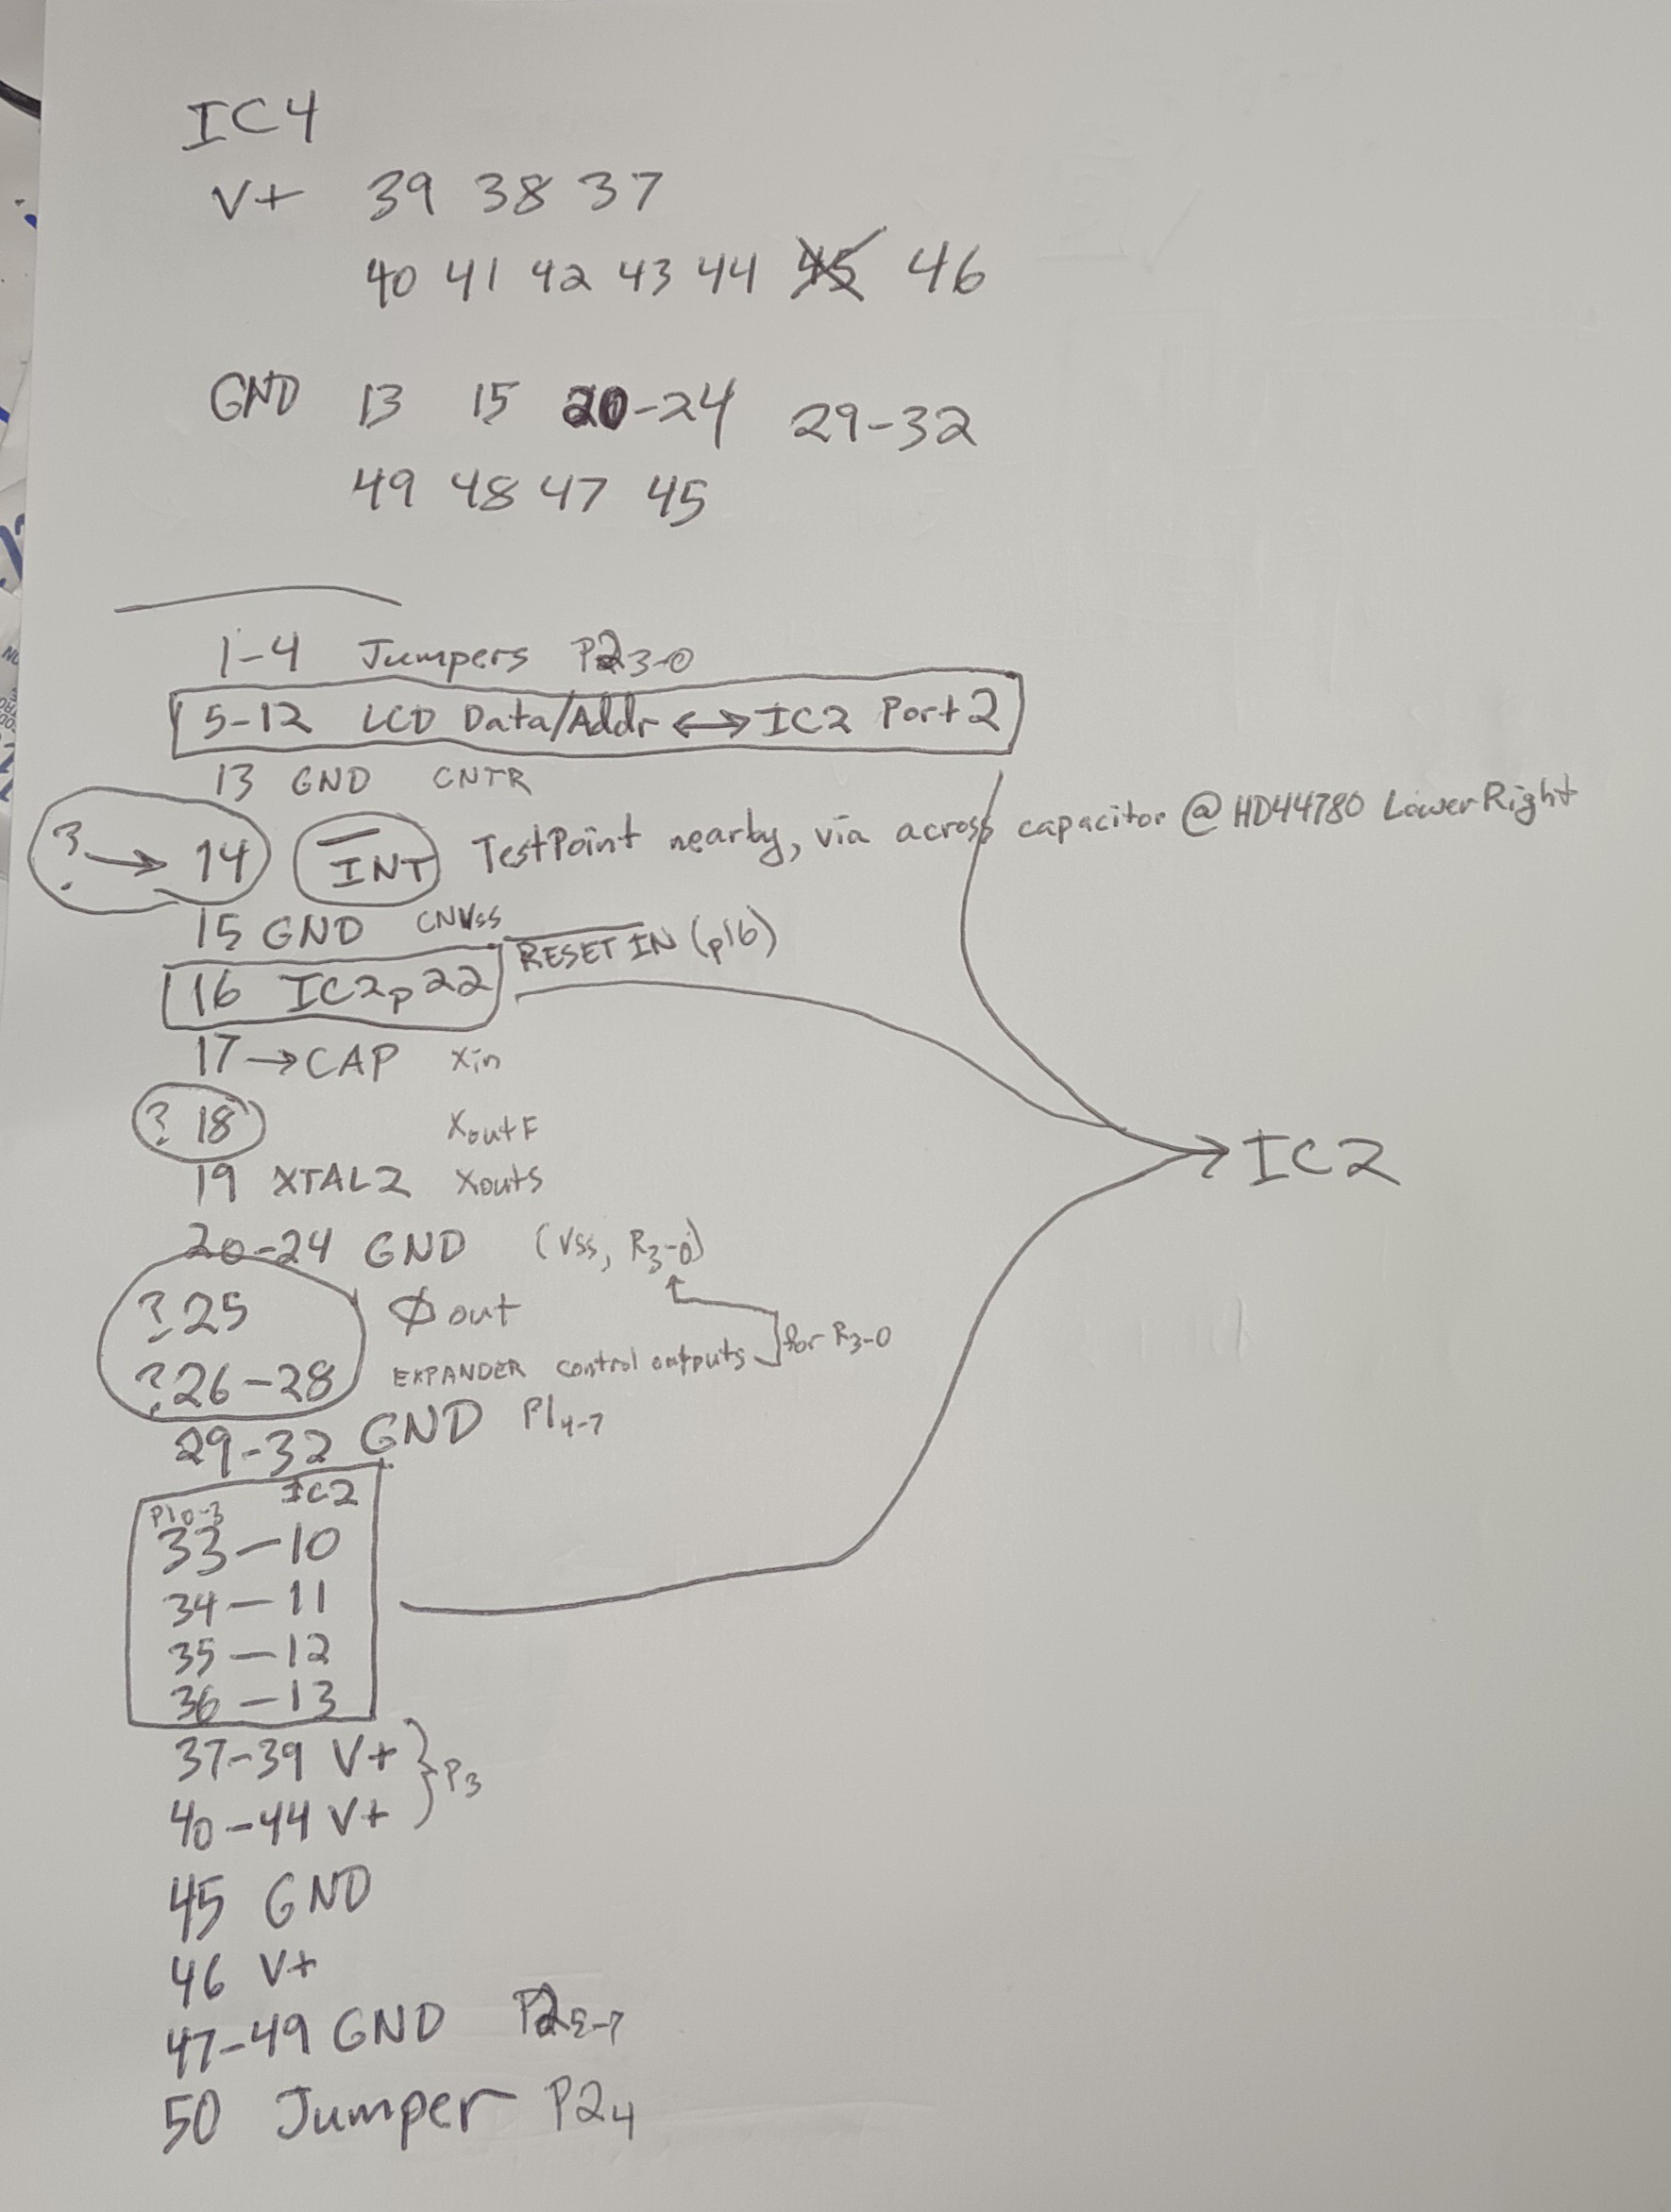 IC4
V+ 39 38 37
40 41 42 43 44 45 46
GND 13 15 20-24 29-32
49 48 47 45
1-4 Jumpers P23-0
5-12 LCD Data/Addr ↔ IC2 Port 2
13 GND CNTR
? → 14 INT TestPoint nearby, via across capacitor @ HD44780 Lower Right
15 GND CNVss
16 IC2p22 RESET IN (p16)
17 → CAP Xin
? 18 XoutF
19 XTAL2 Xouts
→ IC2
20-24 GND (Vss, R3-0)
? 25 Φ out
? 26-28 EXPANDER control outputs for R3-0
29-32 GND P14-7
P10-3 IC2
33 - 10
34 - 11
35 - 12
36 - 13
37-39 V+
40-44 V+ } P3
45 GND
46 V+
47-49 GND P25-7
50 Jumper P24